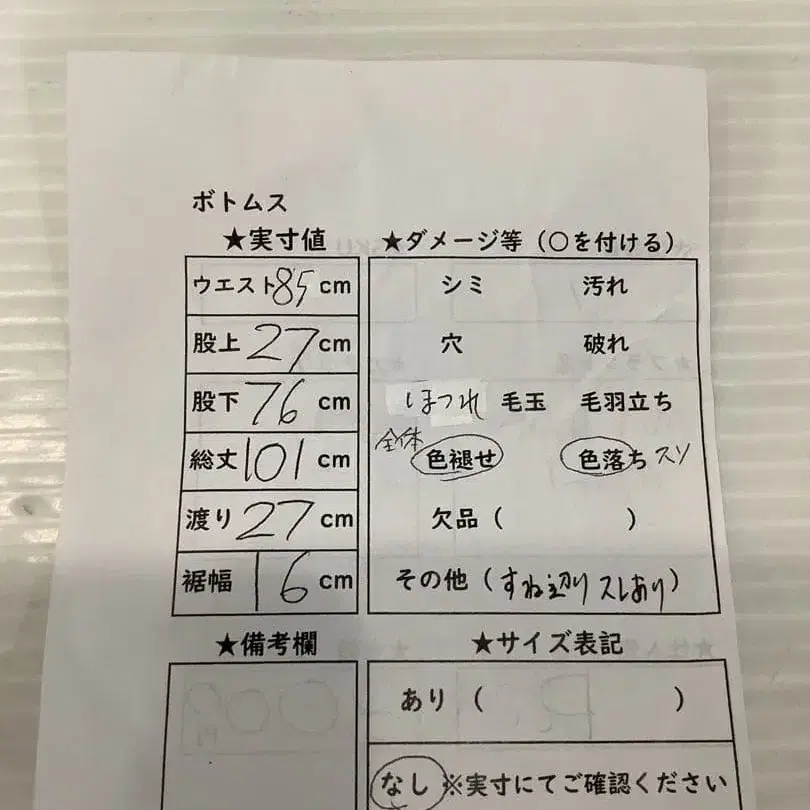 ボトムス
★実寸値
ウエスト 85 cm
股上 27 cm
股下 76 cm
総丈 101 cm
渡り 27 cm
裾幅 16 cm
★ダメージ等（〇を付ける）
シミ 汚れ
穴 破れ
ほつれ 毛玉 毛羽立ち
全体 色褪せ 色落ち スソ
欠品（ ）
その他（すね辺り スレあり）
★備考欄
★サイズ表記
あり（ ）
なし ※実寸にてご確認ください